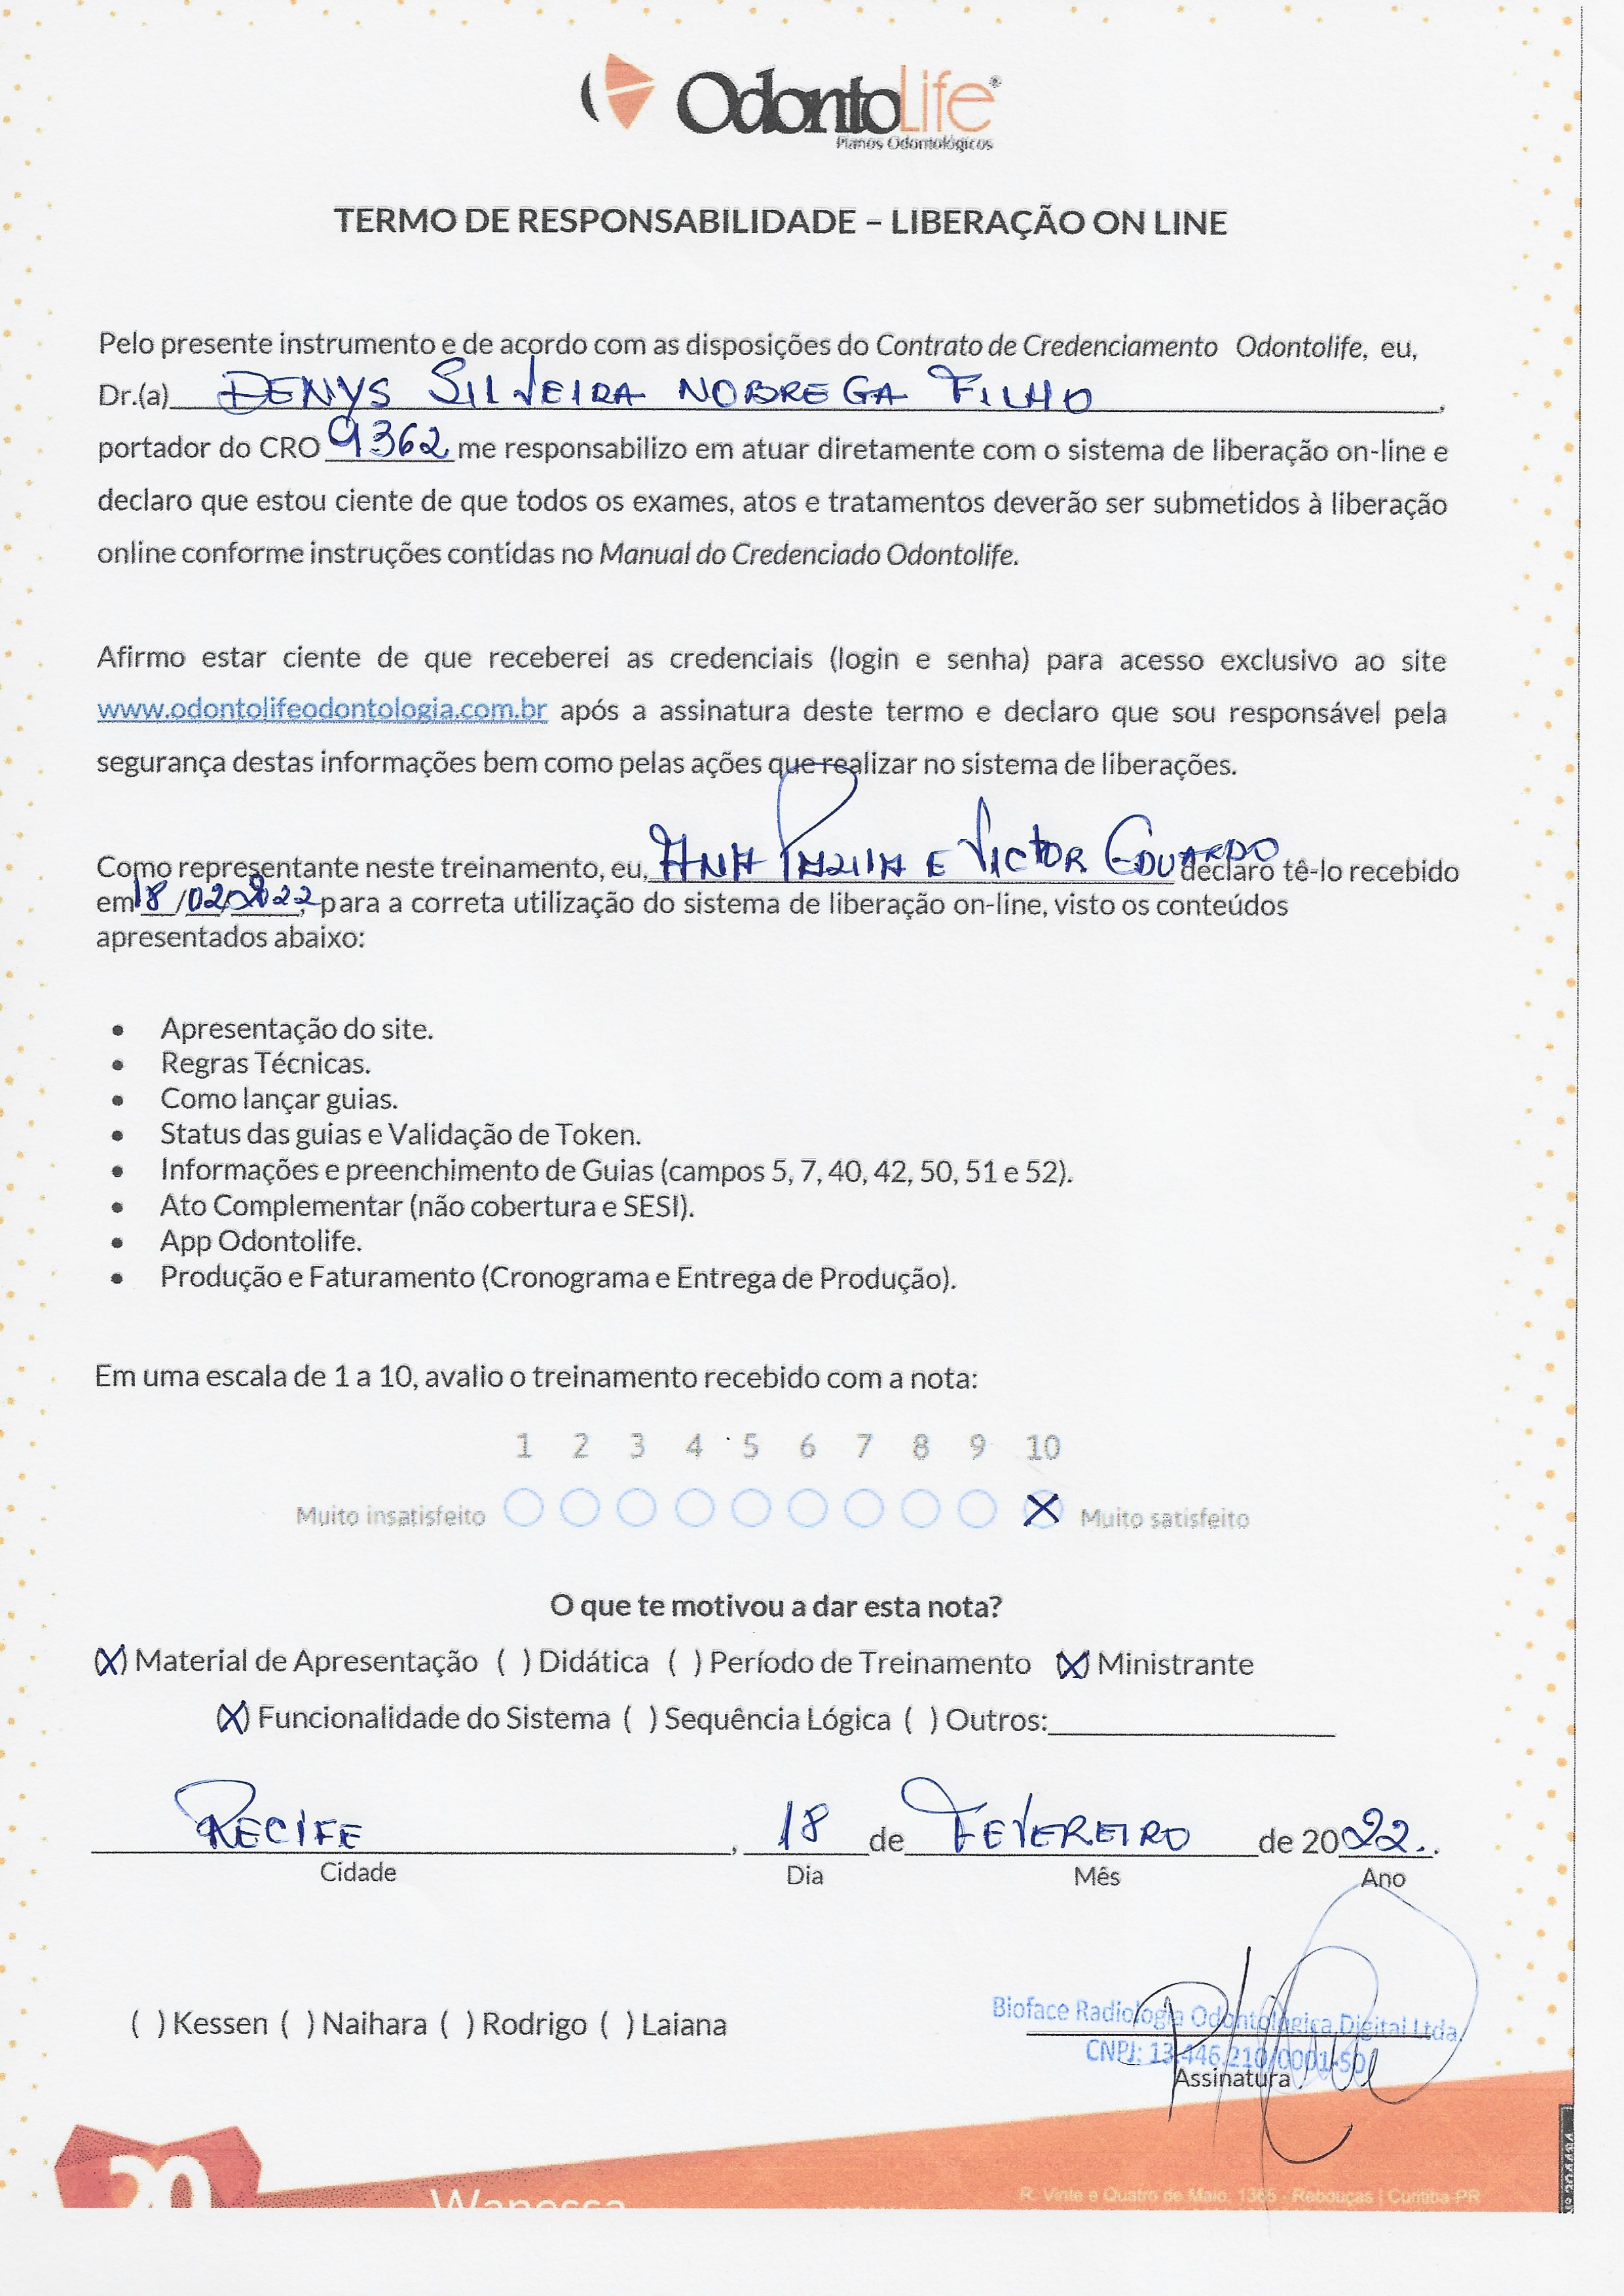 OdontoLife®
Planos Odontológicos
TERMO DE RESPONSABILIDADE – LIBERAÇÃO ON LINE
Pelo presente instrumento e de acordo com as disposições do Contrato de Credenciamento Odontolife, eu,
Dr.(a) DENYS SILVEIRA NOBREGA FILHO,
portador do CRO 9362 me responsabilizo em atuar diretamente com o sistema de liberação on-line e
declaro que estou ciente de que todos os exames, atos e tratamentos deverão ser submetidos à liberação
online conforme instruções contidas no Manual do Credenciado Odontolife.
Afirmo estar ciente de que receberei as credenciais (login e senha) para acesso exclusivo ao site
www.odontolifeodontologia.com.br após a assinatura deste termo e declaro que sou responsável pela
segurança destas informações bem como pelas ações que realizar no sistema de liberações.
Como representante neste treinamento, eu, ANA PAULA E VICTOR EDUARDO declaro tê-lo recebido
em 18/02/2022, para a correta utilização do sistema de liberação on-line, visto os conteúdos
apresentados abaixo:
• Apresentação do site.
• Regras Técnicas.
• Como lançar guias.
• Status das guias e Validação de Token.
• Informações e preenchimento de Guias (campos 5, 7, 40, 42, 50, 51 e 52).
• Ato Complementar (não cobertura e SESI).
• App Odontolife.
• Produção e Faturamento (Cronograma e Entrega de Produção).
Em uma escala de 1 a 10, avalio o treinamento recebido com a nota:
1 2 3 4 5 6 7 8 9 10
Muito insatisfeito X Muito satisfeito
O que te motivou a dar esta nota?
(X) Material de Apresentação ( ) Didática ( ) Período de Treinamento (X) Ministrante
(X) Funcionalidade do Sistema ( ) Sequência Lógica ( ) Outros:
RECIFE, 18 de FEVEREIRO de 2022.
Cidade Dia Mês Ano
( ) Kessen ( ) Naihara ( ) Rodrigo ( ) Laiana
Bioface Radiologia Odontológica Digital Ltda.
CNPJ: 13.446.210/0001-50
Assinatura
20
Wanessa
R. Vinte e Quatro de Maio, 1365 - Rebouças | Curitiba-PR